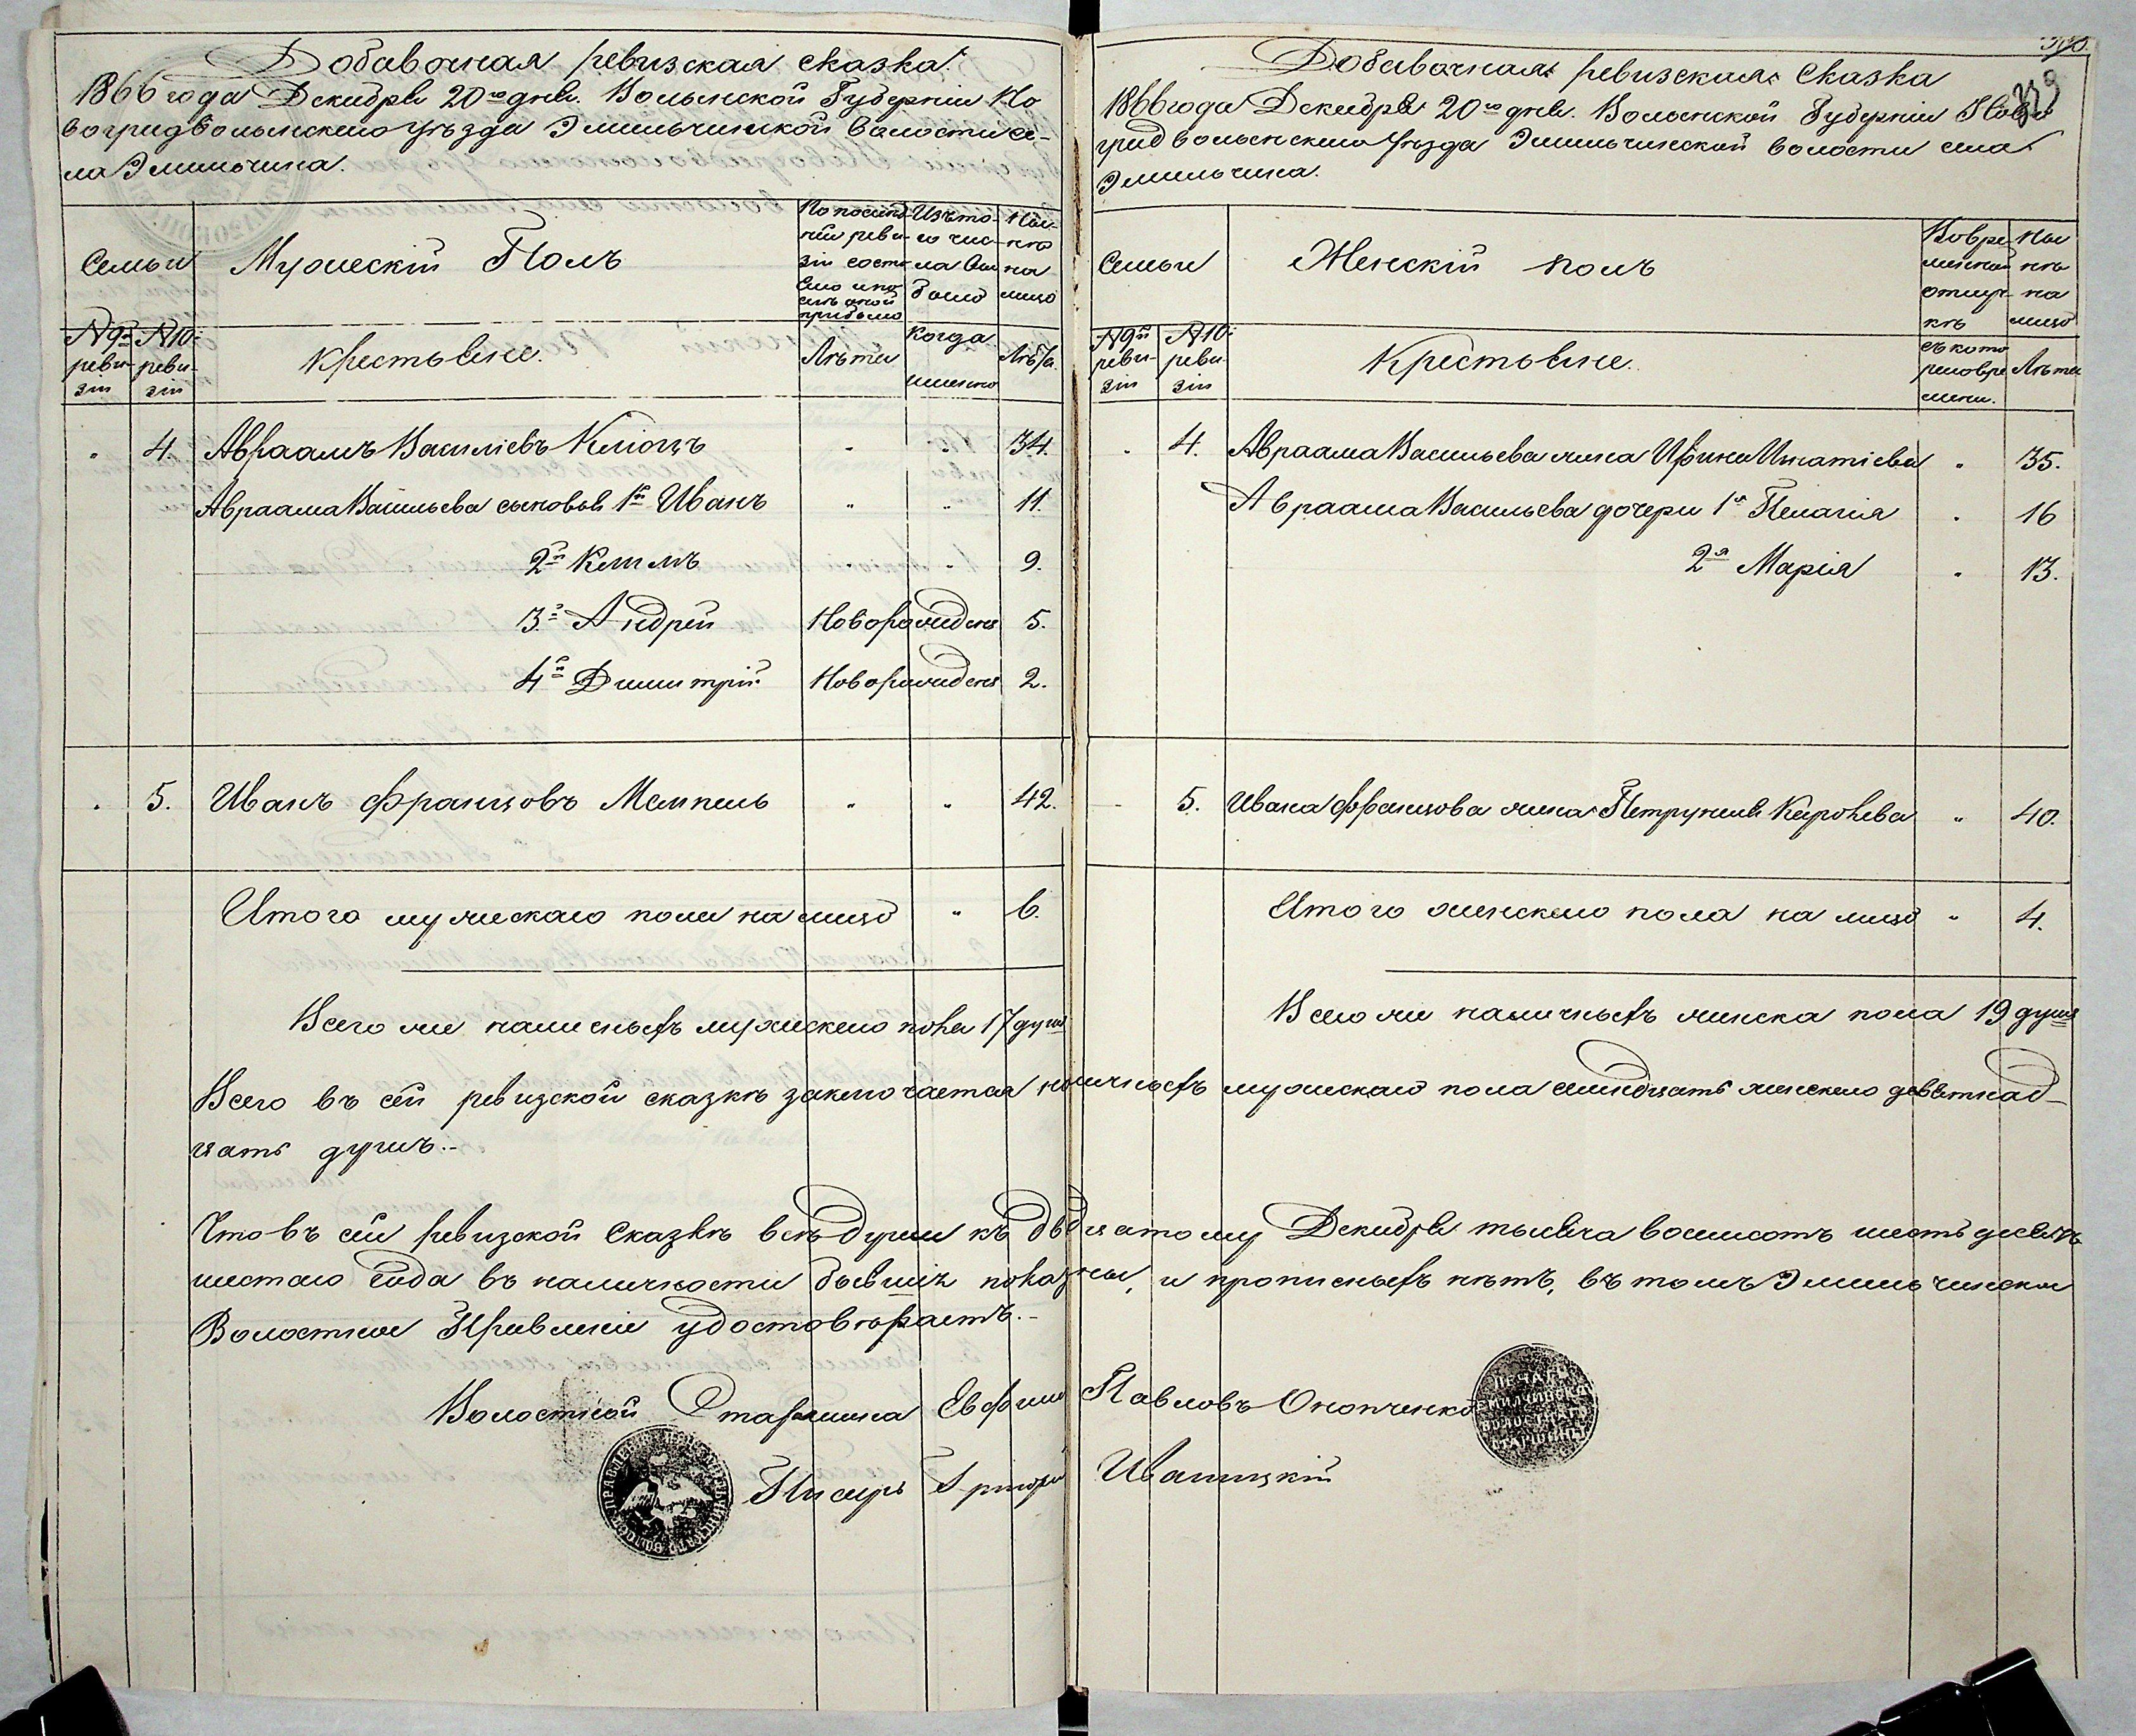 Добавочная ревизская сказка.
1866 года Декабря 20го дня. Волынской Губерніи Но
воградволынскаго уѣзда Эмильчинской волости се-
ла Эмильчина.
Семьи
Мужескій Полъ
По послѣд-
ней реви-
зіи состо
яло и по-
слѣ оной
прибыло
Изъ то-
го чис-
ла вы
было
Ны-
нѣ
на
лицо
№ 9й
реви-
зіи
№ 10й
реви-
зіи
Крестьяне.
Лѣта
Когда
именно
Лѣта
" 4. Авраамъ Василіевъ Кліощъ " " 34.
Авраама Васильева сыновья 1й Иванъ " " 11.
2й " " 9.
3й Андрей Новорожденъ 5.
4й Димитрій Новорожденъ 2.
" 5. Иванъ Францовъ " " 42.
Итого мужескаго пола на лицо " 6.
Всего же наличныхъ мужескаго пола 17 душъ
Добавочная ревизская Сказка
1866 года Декабря 20го дня. Волынской Губерніи Ново
градволынскаго уѣзда Эмильчинской волости села
Эмильчина.
Семьи
Женскій полъ
Во вре
менной
отлуч-
кѣ
Ны
нѣ
на
лицо
№ 9й
реви-
зіи
№ 10й
реви-
зіи
Крестьяне.
съ кото
раго вре
мени.
Лѣта
" 4. Авраама Васильева жена Ирина Игнатіева " 35.
Авраама Васильева дочери 1я Пелагія " 16
2я Марія " 13.
" 5. Ивана Францова жена Петрунеля " 40.
Итого женскаго пола на лицо " 4.
Всего же наличныхъ женска пола 19 душъ
Всего въ сей ревизской сказкѣ заключается наличныхъ мужескаго пола семнадцать женскаго девятнад-
цать душъ.-
Что въ сей ревизской Сказкѣ всѣ души къ двадцатому Декабря тысяча восемсотъ шестьдесятъ
шестаго года въ наличности бывшіе показаны, и прописныхъ нѣтъ, въ томъ Эмильчинское
Волостное Правленіе удостовѣряетъ.-
Волостной Старшина Евфимъ Павловъ Онопченко
ПЕЧАТЬ
ЭМИЛЧИНСКА
ВОЛОСТНАГО
СТАРШИНЫ
Писарь Григорій Иваницкій